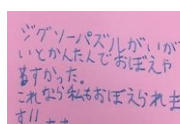 ジグソーパズルがいが
いとかんたんでおぼえや
すかった。
これなら私もおぼえられま
す!!